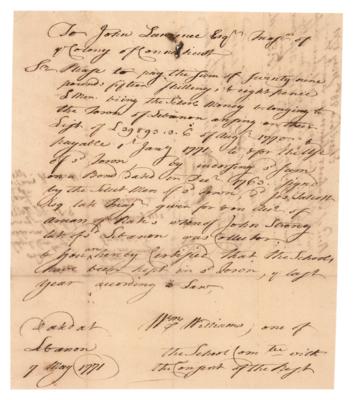 To John Lawrence Esqr Treasr of
ye Colony of Connecticutt
Sir Please to pay the sum of Seventy nine
pounds fifteen shillings & eight pence
L Men. being the School Money belonging to
the Town of Lebanon arising on their
List of £39893.3.6 of Augt 1770 &
payable 1st Jany 1771. to the
sd Town by sd sum
on a Bond dated in Decr 1763. signd
by the Select Men of sd Town, to
Esq late Treasr given for
of Rates whereof John Strong
late of sd Lebanon was Collector.
& you are hereby Certified that the Schools
have been kept in sd Town, ye last
year according to Law.
Dated at
Lebanon
7 May 1771
Wm Williams, one of
the School Comtee with
the Consent of the Rest